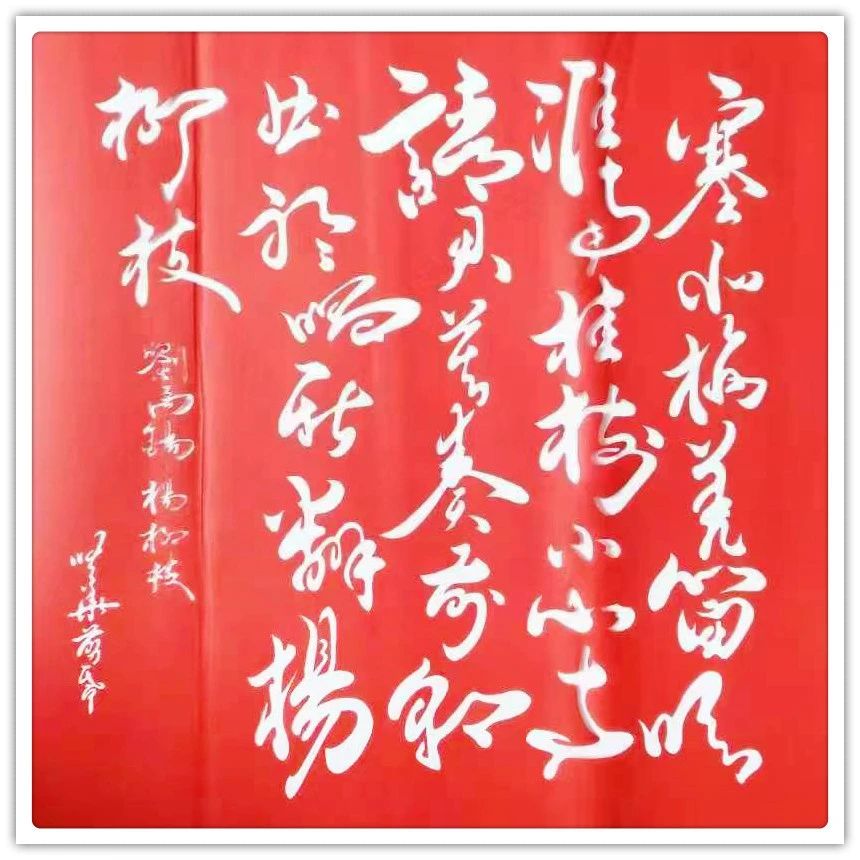 塞北梅羌笛吹
淮南桂树小山词
請君莫奏前朝
曲聽唱新翻楊
柳枝
劉禹錫 楊柳枝